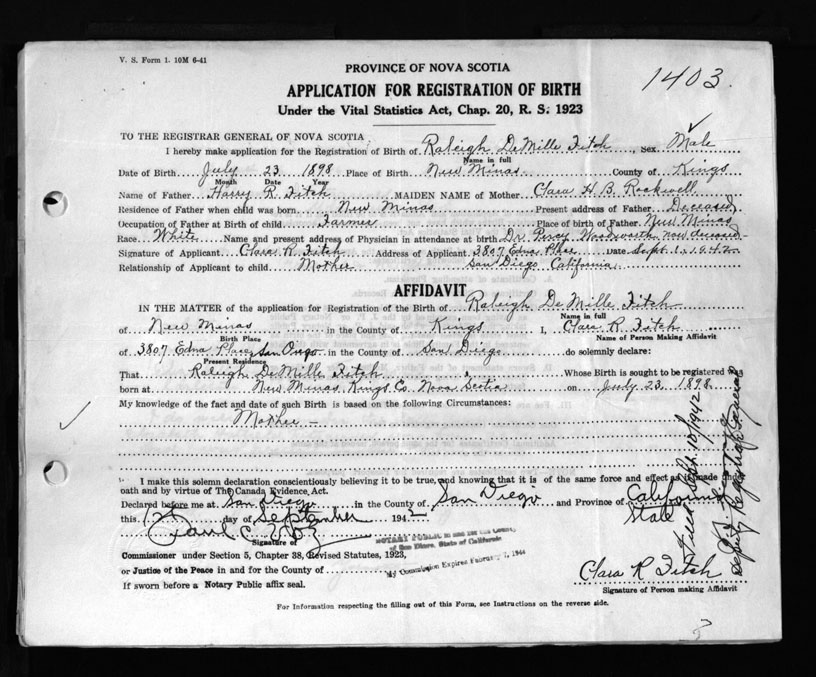 V. S. Form 1. 10M 6-41
1403.
PROVINCE OF NOVA SCOTIA
APPLICATION FOR REGISTRATION OF BIRTH
Under the Vital Statistics Act, Chap. 20, R. S. 1923
TO THE REGISTRAR GENERAL OF NOVA SCOTIA
I hereby make application for the Registration of Birth of Raleigh DeMille Fitch, Sex Male
Name in full
Date of Birth July 23 1898 Place of Birth New Minas County of Kings
Month Date Year
Name of Father Harry R. Fitch MAIDEN NAME of Mother Clara H. B. Rockwell
Residence of Father when child was born New Minas Present address of Father Deceased
Occupation of Father at Birth of child Farmer Place of birth of Father New Minas
Race White Name and present address of Physician in attendance at birth Dr. Percy Woodworth now deceased
Signature of Applicant Clara R. Fitch Address of Applicant 3807 Edna Place Date Sept. 1, 1942
Relationship of Applicant to child Mother San Diego California
AFFIDAVIT
IN THE MATTER of the application for Registration of the Birth of Raleigh DeMille Fitch
Name in full
of New Minas in the County of Kings I, Clara R Fitch
Birth Place Name of Person Making Affidavit
of 3807 Edna Place, San Diego in the County of San Diego do solemnly declare:
Present Residence
That Raleigh DeMille Fitch Whose Birth is sought to be registered was
born at New Minas Kings Co. Nova Scotia on July 23, 1898
My knowledge of the fact and date of such Birth is based on the following Circumstances:
Mother -
I make this solemn declaration conscientiously believing it to be true, and knowing that it is of the same force and effect as if made under
oath and by virtue of The Canada Evidence Act.
Declared before me at San Diego in the County of San Diego and Province of California
this 1st day of September 1942 State
Signature of
NOTARY PUBLIC in and for the County
of San Diego, State of California
My Commission Expires February 7, 1944
Commissioner under Section 5, Chapter 38, Revised Statutes, 1923,
or Justice of the Peace in and for the County of
If sworn before a Notary Public affix seal.
Clara R Fitch
Signature of Person making Affidavit
For Information respecting the filling out of this Form, see Instructions on the reverse side.
Filed Sept. 10/1942
Deputy Registrar General